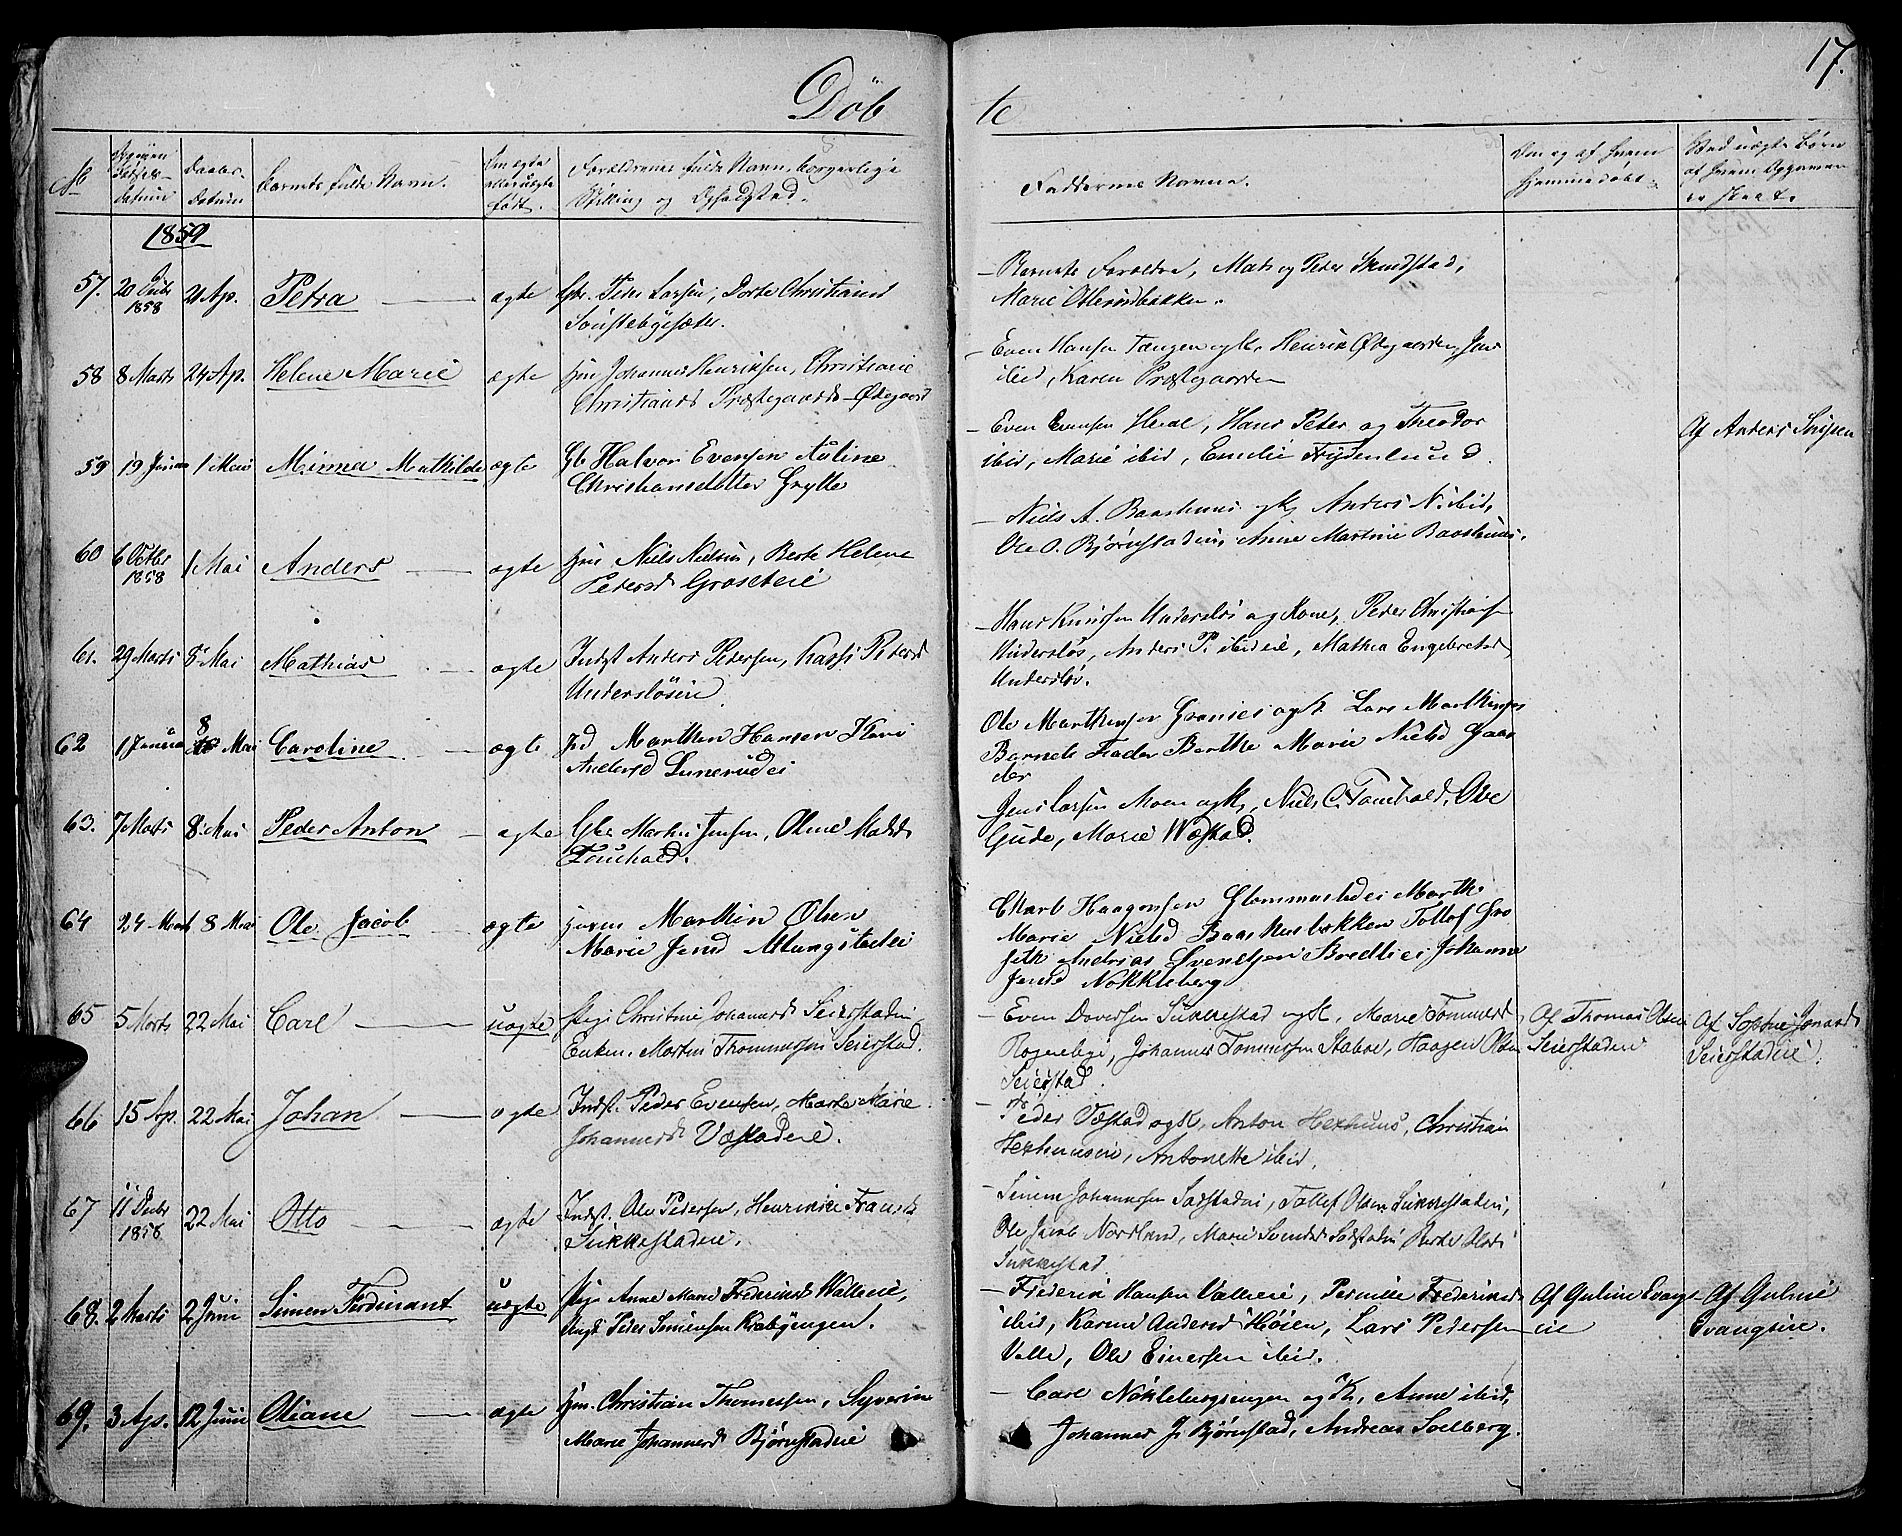 Döb te 17.
No
Datum
Daabs-
Datum
Barnets fulde Navn.
Om ægte
eller uægte
født.
Forældrenes fulde Navn, borgerlige
Stilling og Opholdsted.
Faddernes Navne.
Om og af hvem
hjemmedøbt.
Ved uægte Børn
af hvem Opgaven
er skeet.
1859
57. 20 Decbr 1858 21 Ap. Petra ægte Gbr. Peder Larsen, Dorte Christiansd
Sønstebysæter.
- Barnets Forældre, Mads og Peder Skredstad,
Marie
58 8 Marts 24 Ap. Helene Marie ægte Hm Johannes Henriksen, Christiane
Christiansd Præstegaards-Ødegaard
- Even Hansen Tangen og K, Henrik Ødegaarden, Jens
ibid, Karen Præstegaarden
59 19 Januar 1 Mai Minna Mathilde ægte Gb Halvor Evensen Auline
Christiansdatter Grytte
- Even Evensen Herde, Hans Peter og Theodor
ibid, Marie ibid, Emelie Frydenlund.
Af Anders Snipen
60 6 Octbr 1858 1 Mai Anders ægte Hm Niels Nielsen, Berte Helene
Pedersd Groseteie
- Niels A. Baashuus og K, Anders N. ibid,
Ole O. Bjørnstadeie, Anne Martine Baashuus.
61. 29 Marts 8 Mai Mathias ægte Indst Anders Pedersen, Kassi Pedersd
Undersløseie
- Hans Knudsen Undersløs og Kone, Peder Christians
Undersløs, Anders P. ibideie, Mathea Engebretsd
Undersløs.
62 1 Januar 8 Mai Caroline ægte Ind Marthin Hansen Kari
Andersd Lunerudei
Ole Marthinsen Graniei og k. Lars Marthinsen
Barnets Fader Berthe Marie Nielsd Gaar
der
63. 7 Marts 8. Mai Peder Anton ægte Gbr Martin Jensen, Oline Madsd
Touhold.
Jens Larsen Moen og K, Niels C. Touhold, Ole
Gude, Marie Wæstad.
64 24 Marts 8 Mai Ole Jacob ægte Huusm Marthin Olsen
Marie Jensd Alungstadei
Haagensen Glommestadei Marth
Marie Nielsd Baashusbakken Tollef Gro
Andreas Svendsen Bredliei Johanne
Jensd Nøkkleberg
65 5 Marts 22 Mai Carl uægte Pige Christine Johannesd Seierstadeie,
Enkem. Martin Thommesen Seierstad.
- Even Doversen Sukkestad og K, Marie Tommesd
Rognebye, Johannes Tommesen Stabo, Haagen Olsen
Seierstad.
Af Thomas Olsen
Seierstadeie
Af Sophie Jonasd
Seierstadeie.
66 15 Ap. 22 Mai Johan ægte Indst. Peder Evensen, Marte Marie
Johannesd Væstadeie.
- Peder Væstad og K, Anton Hexhuus, Christian
Hexhuuseie, Antonette ibid.
67 11 Decbr 1858 22 Mai Otto ægte Indst. Ole Pedersen, Henrikke Fransd
Sukkestadeie.
- Simen Johannesen Sæstadei, Tollef Olsen Sukkestadeie,
Ole Jacob Nordland, Marie Svendsd Sæstadei, Berte Olsd
Sukkestad.
68. 2 Marts 2 Juni Simen Ferdinant uægte Pige Anne Marie Frederiksd Walleeie,
Ungk Peder Simensen Krabyengen.
- Frederik Hansen Valleeie, Pernille Frederiksd
ibid, Karine Andersd Høien, Lars Pedersen
Valle, Ole Einersen ibid.
Af Guline Evang
eie
Af Guline
Evangseie.
69. 3 Ap. 12 Juni Oliane ægte Hm. Christian Thomessen, Syverin
Marie Johannesd Bjørnstadeie
- Carl Nøklebyengen og K, Anne ibid,
Johannes J. Bjørnstad, Andreas Soelberg.